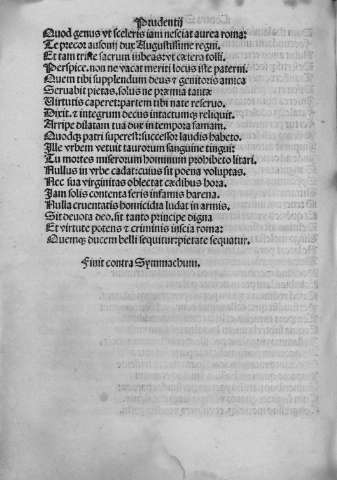 Prudentij
Quod genus vt sceleris iam nesciat aurea roma:
Te precor ausonij dux Augustissime regni.
Et tam triste sacrum iubeas: vt cætera tolli.
Perspice. non ne vacat meriti locus iste paterni.
Quem tibi supplendum deus & genitoris amica
Seruabit pietas, solus ne præmia tantæ
Virtutis caperet: partem tibi nate reseruo.
Dixit. & integrum decus intactumq; reliquit.
Arripe dilatam tua dux in tempora famam.
Quodq; patri superest: successor laudis habeto.
Ille vrbem vetuit taurorum sanguine tingui:
Tu mortes miserorum hominum prohibeto litari.
Nullus in vrbe cadat: cuius sit poena voluptas.
Nec sua virginitas oblectat cædibus hora.
Iam solis contenta feris infamis harena.
Nulla cruentatis homicidia ludat in armis.
Sit deuota deo. sit tanto principe digna
Et virtute potens & criminis inscia roma:
Quemq; ducem belli sequitur: pietate sequatur.
Finit contra Symmachum.